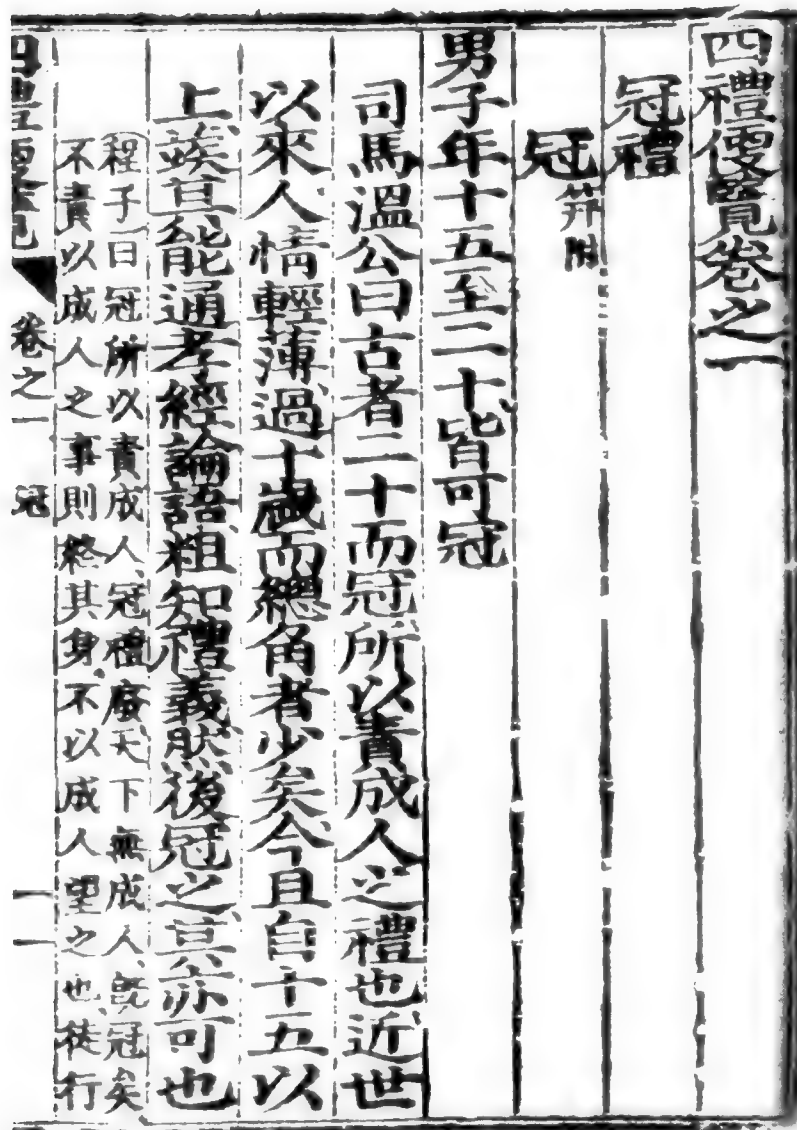 四禮便覽卷之一
冠禮
冠笄附
男子年十五至二十皆可冠
司馬溫公曰古者二十而冠所以責成人之禮也近世
以來人情輕薄過十歲而總角者少矣今且自十五以
上竢其能通孝經論語粗知禮義然後冠之其亦可也
程子曰冠所以責成人冠禮廢天下無成人旣冠矣
不責以成人之事則終其身不以成人望之也徒行
四禮便覽 卷之一 冠 一